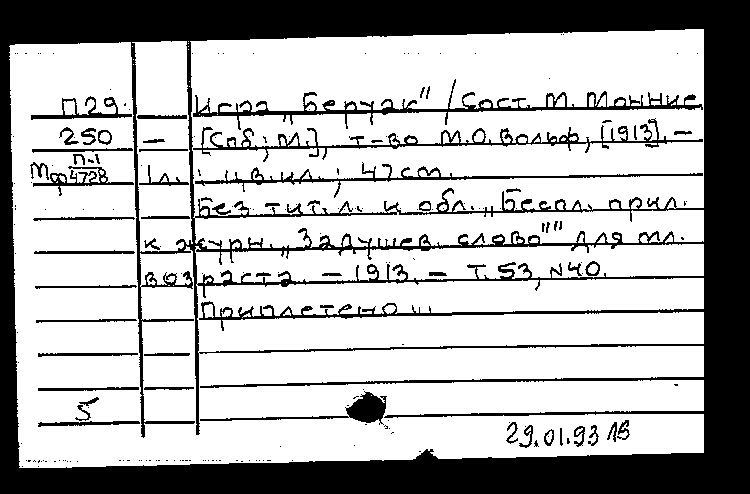 П29. Игра „Беруак" / Сост. М. Монние.
250 — [Спб.; М.], т-во М.О. Вольф, [1913]. –
Мф П-1/4728 1л. : цв.ил. ; 47см.
Без тит. л. и обл. „Беспл. прил.
к журн. „Задушев. слово"" для мл.
возраста. – 1913. – Т. 53, №40.
Приплетено ...
5
29.01.93